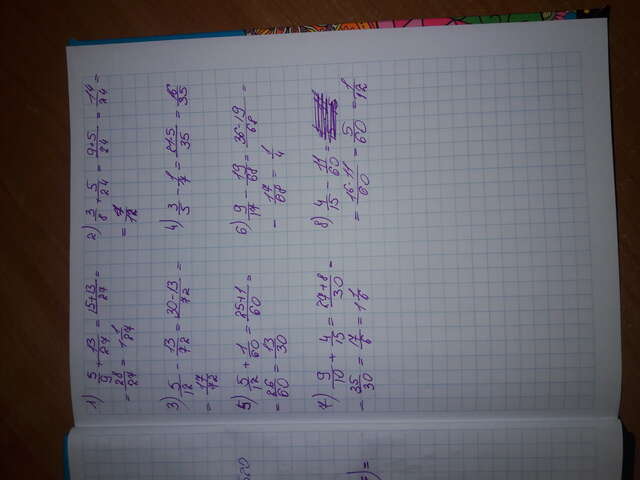 1) 5/9 + 13/27 = 15+13/27 =
= 28/27 = 1 1/27
2) 3/8 + 5/24 = 9+5/24 = 14/24 =
= 7/12
3) 5/12 - 13/72 = 30-13/72 =
= 17/72
4) 3/5 - 1/7 = = 16/35
5) 5/12 + 1/60 = 25+1/60 =
= 26/60 = 13/30
6) 9/17 - 19/68 = 36-19/68 =
- 17/68 = 1/4
7) 9/10 + 4/15 = 27+8/30 =
= 35/30 = 1 1/6
8) 4/15 - 11/60 =
= 16-11/60 = 5/60 = 1/12